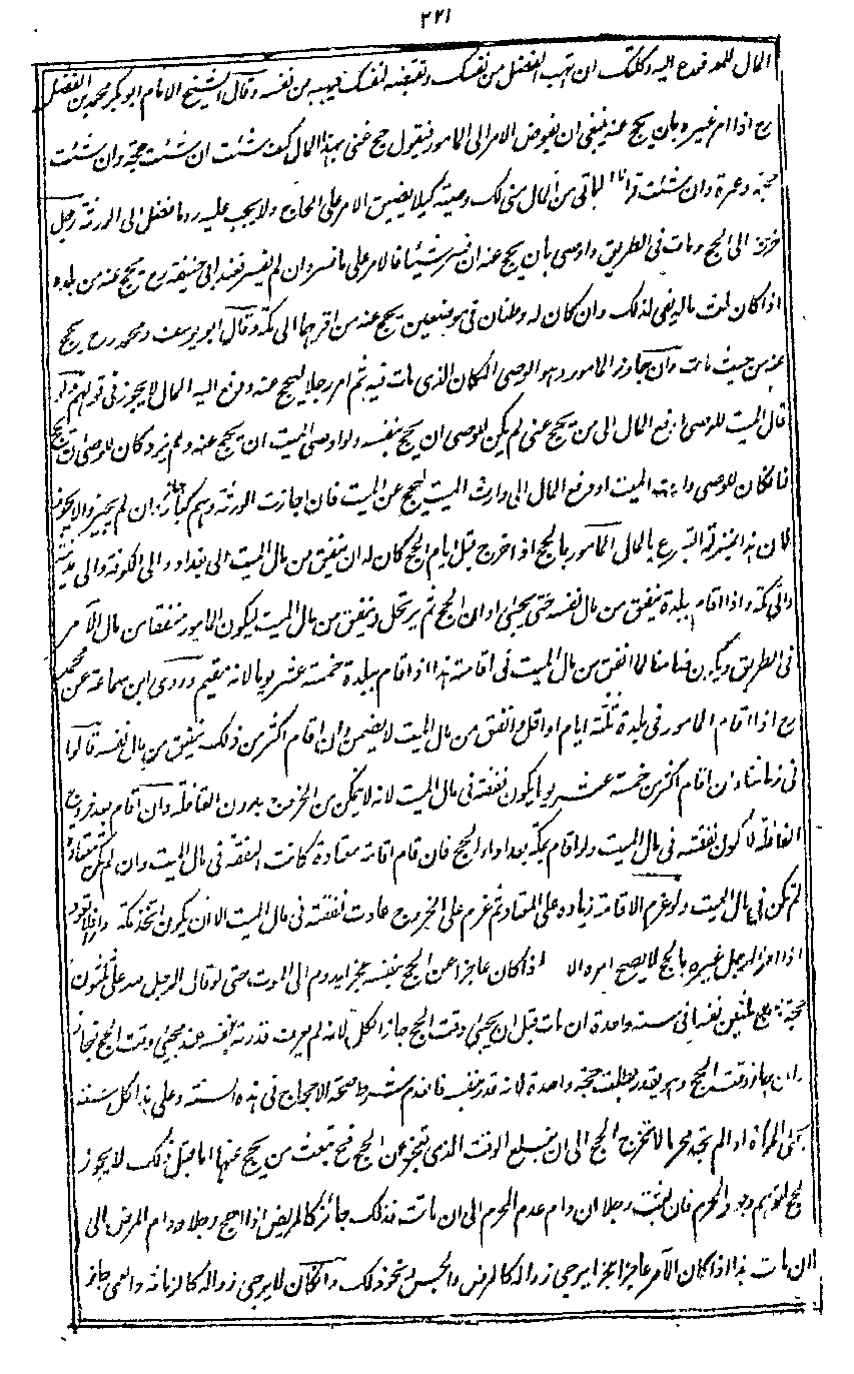 ٢٢١
المال للمدفوع اليه وكلتك ان تهب الفضل من نفسك وتقبضه لنفسك فيهبه من نفسه وقال الشيخ الامام ابو بكر محمد بن الفضل
رح اذا امر غيره بان يحج عنه ينبغي ان يفوض الامر الى المامور فيقول حج عني بهذا المال كيف شئت ان شئت حجة وان شئت
حجة وعمرة وان شئت قرانا الباقي من المال مني لك وصية كيلا يضيق الامر على الحاج ولا يجب عليه رد ما فضل الى الورثة رجل
خرج الى الحج ومات في الطريق واوصى بان يحج عنه ان فسر شيئا فالامر على ما فسر وان لم يفسر فعند ابي حنيفة رح يحج عنه من بلده
اذا كان ثلث ماله يفي لذلك وان كان له وطنان في موضعين يحج عنه من اقربهما الى مكة وقال ابو يوسف ومحمد رح يحج
عنه من حيث مات وان جاوز المامور وهو الوصي المكان الذي مات فيه ثم امر رجلا ليحج عنه ودفع اليه المال لا يجوز في قولهم ولو
قال الميت للوصي ادفع المال الى من يحج عني لم يكن للوصي ان يحج بنفسه ولو اوصى الميت ان يحج عنه ولم يزد كان للوصي ان يحج
فان كان للوصي وارث الميت او دفع المال الى وارث الميت ليحج عن الميت فان اجازت الورثة وهم كبار جاز وان لم يجيزوا لا يجوز
لان هذا بمنزلة التبرع بالمال المامور بالحج اذا خرج قبل ايام الحج كان له ان ينفق من مال الميت الى بغداد والى الكوفة والى مدينة
والى مكة واذا اقام ببلدة ينفق من مال نفسه حتى يجيء اوان الحج ثم يرتحل وينفق من مال الميت ليكون المامور منفقا من مال الآمر
في الطريق ويكون ضامنا لما انفق من مال الميت في اقامته هذا اذا اقام ببلدة خمسة عشر يوما لانه مقيم وروى ابن سماعة عن محمد
رح اذا اقام المامور في بلدة ثلثة ايام او اقل وانفق من مال الميت لا يضمن وان اقام اكثر من ذلك ينفق من مال نفسه قالوا
في زماننا وان اقام اكثر من خمسة عشر يوما يكون نفقته في مال الميت لانه لا يتمكن من الخروج بدون القافلة وان اقام بعد خروج
القافلة لا يكون نفقته في مال الميت ولو اقام بمكة بعد اداء الحج فان اقام اقامة معتادة كانت النفقة في مال الميت وان لم يكن معتادة
لم تكن في مال الميت ولو عزم الاقامة زيادة على المعتاد ثم عزم على الخروج عادت نفقته في مال الميت الا ان يكون اتخذ مكة دارا فلا تعود
اذا امر الرجل غيره بالحج لا يصح امره الا اذا كان عاجزا عن الحج بنفسه عجزا يدوم الى الموت حتى لو قال الرجل لله على ثلثون
حجة فاحج ثلثين نفسا في سنة واحدة ان مات قبل ان يجيء وقت الحج جاز الكل لانه لم يعرف قدرته بنفسه عند مجيء وقت الحج فجاز
وان جاء وقت الحج وهو يقدر بطلت حجة واحدة لانه قدر بنفسه فانعدم شرط صحة الاحجاج في هذه السنة وعلى هذا كل سنة
تجيء المراة اذا لم تجد محرما لا تخرج الى الحج الى ان تبلغ الوقت الذي تعجز عن الحج فح تبعث من يحج عنها اما قبل ذلك لا يجوز
الحج لتوهم وجود المحرم فان بعثت رجلا ان دام عدم المحرم الى ان ماتت فذلك جائز كالمريض اذا احج رجلا ودام المرض الى
ان مات هذا اذا كان الآمر عاجزا عجزا يرجى زواله كالمرض والحبس ونحو ذلك وان كان لا يرجى زواله كالزمانة والعمى جاز